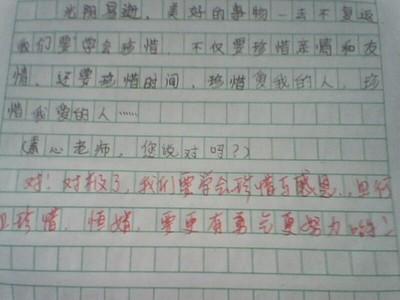 光阴易逝,美好的事物一去不复返
我们要学会珍惜,不仅要珍惜亲情和友
情,还要珍惜时间,珍惜爱我的人,珍
惜我爱的人……
(素心老师,您说对吗?)
对!对极了,我们要学会珍惜与感恩…
珍惜,要更有勇气更努力哟!